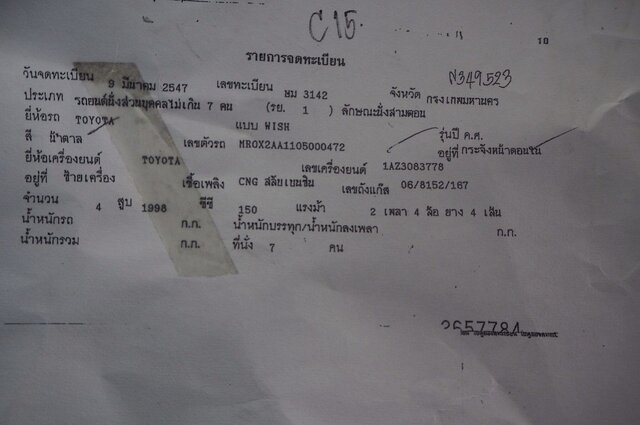 C 15.
10
รายการจดทะเบียน
ศ349523
วันจดทะเบียน 9 มีนาคม 2547 เลขทะเบียน ษม 3142 จังหวัด กรุงเทพมหานคร
ประเภท รถยนต์นั่งส่วนบุคคลไม่เกิน 7 คน (รย. 1 ) ลักษณะนั่งสามตอน
ยี่ห้อรถ TOYOTA แบบ WISH รุ่นปี ค.ศ.
สี น้ำตาล เลขตัวรถ MR0X2AA1105000472 อยู่ที่ กระจังหน้าตอนใน
ยี่ห้อเครื่องยนต์ TOYOTA เลขเครื่องยนต์ 1AZ3083778
อยู่ที่ ซ้ายเครื่อง เชื้อเพลิง CNG สลับเบนซิน เลขถังแก๊ส 06/8152/167
จำนวน 4 สูบ 1998 ซีซี 150 แรงม้า 2 เพลา 4 ล้อ ยาง 4 เส้น
น้ำหนักรถ ก.ก. น้ำหนักบรรทุก/น้ำหนักลงเพลา ก.ก.
น้ำหนักรวม ก.ก. ที่นั่ง 7 คน
2657784